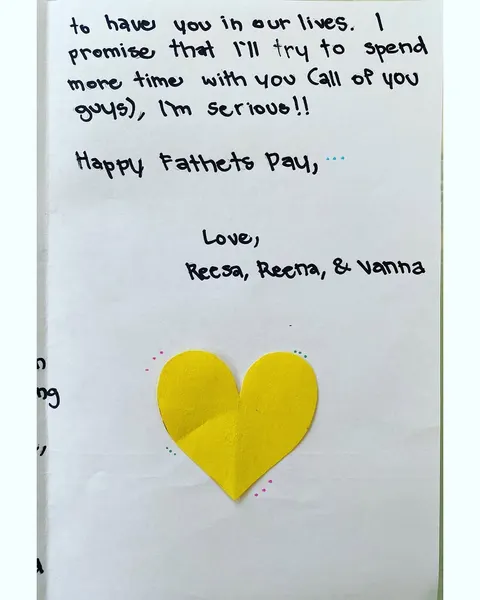 to have you in our lives. I
promise that I'll try to spend
more time with you (all of you
guys), I'm serious!!
Happy Fathers Day, ...
Love,
Reesa, Reena, & Vanna
n
ng
,